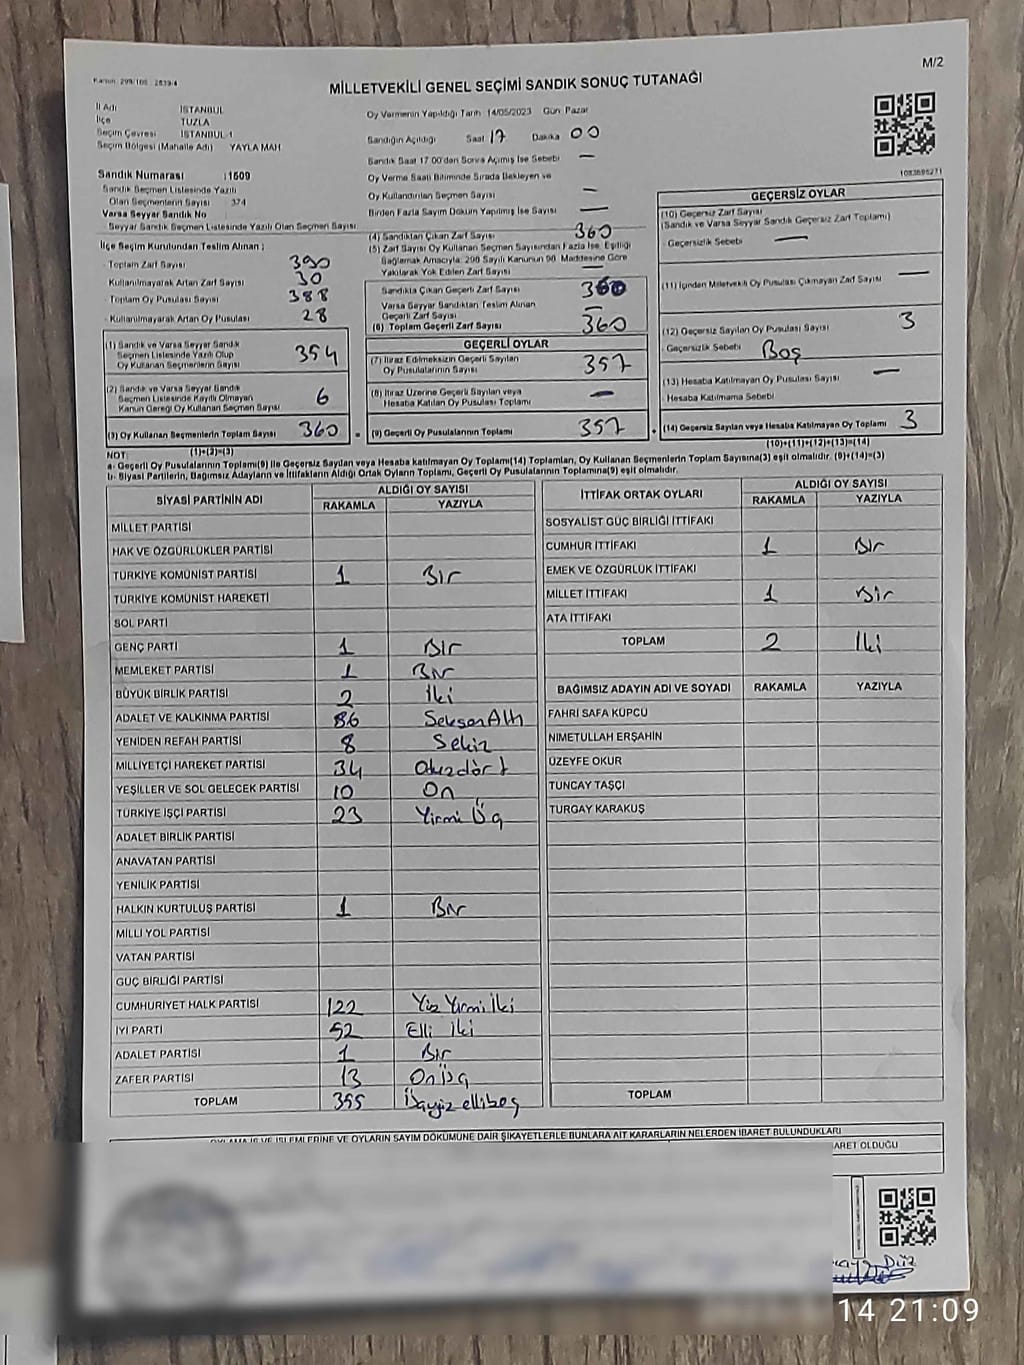 M/2
MİLLETVEKİLİ GENEL SEÇİMİ SANDIK SONUÇ TUTANAĞI
İl Adı İSTANBUL
İlçe TUZLA
Seçim Çevresi İSTANBUL-1
Seçim Bölgesi (Mahalle Adı) YAYLA MAH
Sandık Numarası : 1509
Sandık Seçmen Listesinde Yazılı
Olan Seçmenlerin Sayısı 374
Varsa Seyyar Sandık No
Seyyar Sandık Seçmen Listesinde Yazılı Olan Seçmen Sayısı
Oy Vermenin Yapıldığı Tarih 14/05/2023 Gün Pazar
Sandığın Açıldığı Saat 17 Dakika 00
Sandık Saat 17 00'den Sonra Açılmış İse Sebebi —
Oy Verme Saati Bitiminde Sırada Bekleyen ve
Oy Kullandırılan Seçmen Sayısı —
Birden Fazla Sayım Döküm Yapılmış İse Sayısı —
1083595271
İlçe Seçim Kurulundan Teslim Alınan ;
Toplam Zarf Sayısı 390
Kullanılmayarak Artan Zarf Sayısı 30
Toplam Oy Pusulası Sayısı 388
Kullanılmayarak Artan Oy Pusulası 28
(1) Sandık ve Varsa Seyyar Sandık
Seçmen Listesinde Yazılı Olup
Oy Kullanan Seçmenlerin Sayısı 354
(2) Sandık ve Varsa Seyyar Sandık
Seçmen Listesinde Kayıtlı Olmayan
Kanun Gereği Oy Kullanan Seçmen Sayısı 6
(3) Oy Kullanan Seçmenlerin Toplam Sayısı 360
(1)+(2)=(3)
(4) Sandıktan Çıkan Zarf Sayısı 360
(5) Zarf Sayısı Oy Kullanan Seçmen Sayısından Fazla İse, Eşitliği
Sağlamak Amacıyla, 298 Sayılı Kanunun 98. Maddesine Göre
Yakılarak Yok Edilen Zarf Sayısı —
Sandıkta Çıkan Geçerli Zarf Sayısı 360
Varsa Seyyar Sandıktan Teslim Alınan
Geçerli Zarf Sayısı —
(6) Toplam Geçerli Zarf Sayısı 360
GEÇERLİ OYLAR
(7) İtiraz Edilmeksizin Geçerli Sayılan
Oy Pusulalarının Sayısı 357
(8) İtiraz Üzerine Geçerli Sayılan veya
Hesaba Katılan Oy Pusulası Toplamı —
(9) Geçerli Oy Pusulalarının Toplamı 357
GEÇERSİZ OYLAR
(10) Geçersiz Zarf Sayısı
(Sandık ve Varsa Seyyar Sandık Geçersiz Zarf Toplamı)
Geçersizlik Sebebi —
(11) İçinden Milletvekili Oy Pusulası Çıkmayan Zarf Sayısı —
(12) Geçersiz Sayılan Oy Pusulası Sayısı 3
Geçersizlik Sebebi Boş
(13) Hesaba Katılmayan Oy Pusulası Sayısı —
Hesaba Katılmama Sebebi
(14) Geçersiz Sayılan veya Hesaba Katılmayan Oy Toplamı 3
(10)+(11)+(12)+(13)=(14)
NOT:
a- Geçerli Oy Pusulalarının Toplamı(9) ile Geçersiz Sayılan veya Hesaba katılmayan Oy Toplamı(14) Toplamları, Oy Kullanan Seçmenlerin Toplam Sayısına(3) eşit olmalıdır. (9)+(14)=(3)
b- Siyasi Partilerin, Bağımsız Adayların ve İttifakların Aldığı Ortak Oyların Toplamı, Geçerli Oy Pusulalarının Toplamına(9) eşit olmalıdır.
SİYASİ PARTİNİN ADI ALDIĞI OY SAYISI
RAKAMLA YAZIYLA
MİLLET PARTİSİ
HAK VE ÖZGÜRLÜKLER PARTİSİ
TÜRKİYE KOMÜNİST PARTİSİ 1 Bir
TÜRKİYE KOMÜNİST HAREKETİ
SOL PARTİ
GENÇ PARTİ 1 Bir
MEMLEKET PARTİSİ 1 Bir
BÜYÜK BİRLİK PARTİSİ 2 İki
ADALET VE KALKINMA PARTİSİ 86 Seksen Altı
YENİDEN REFAH PARTİSİ 8 Sekiz
MİLLİYETÇİ HAREKET PARTİSİ 34 Otuzdört
YEŞİLLER VE SOL GELECEK PARTİSİ 10 On
TÜRKİYE İŞÇİ PARTİSİ 23 Yirmi Üç
ADALET BİRLİK PARTİSİ
ANAVATAN PARTİSİ
YENİLİK PARTİSİ
HALKIN KURTULUŞ PARTİSİ 1 Bir
MİLLİ YOL PARTİSİ
VATAN PARTİSİ
GÜÇ BİRLİĞİ PARTİSİ
CUMHURİYET HALK PARTİSİ 122 Yüz Yirmi İki
İYİ PARTİ 52 Elli iki
ADALET PARTİSİ 1 Bir
ZAFER PARTİSİ 13 Onüç
TOPLAM 355 Üçyüz ellibeş
İTTİFAK ORTAK OYLARI ALDIĞI OY SAYISI
RAKAMLA YAZIYLA
SOSYALİST GÜÇ BİRLİĞİ İTTİFAKI
CUMHUR İTTİFAKI 1 Bir
EMEK VE ÖZGÜRLÜK İTTİFAKI
MİLLET İTTİFAKI 1 Bir
ATA İTTİFAKI
TOPLAM 2 İki
BAĞIMSIZ ADAYIN ADI VE SOYADI RAKAMLA YAZIYLA
FAHRİ SAFA KÜPCÜ
NİMETULLAH ERŞAHİN
ÜZEYFE OKUR
TUNCAY TAŞÇI
TURGAY KARAKUŞ
TOPLAM
OYLAMA İŞ VE İŞLEMLERİNE VE OYLARIN SAYIM DÖKÜMÜNE DAİR ŞİKAYETLERLE BUNLARA AİT KARARLARIN NELERDEN İBARET BULUNDUKLARI
ARET OLDUĞU
Düz
14 21:09